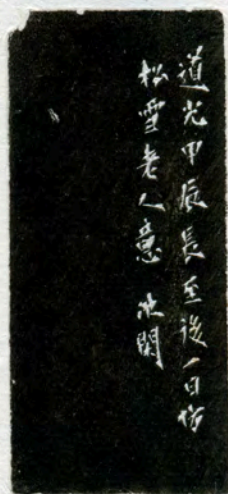 道光甲辰長至後一日仿
松雪老人意 次閑